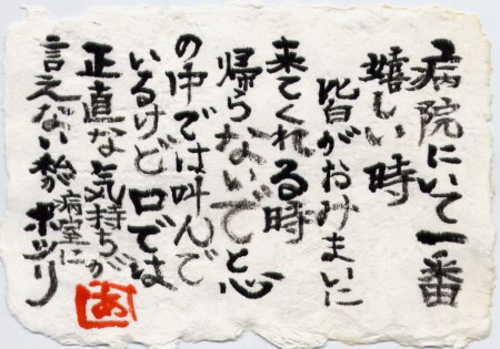 病院にいて一番
嬉しい時
皆がおみまいに
来てくれる時
帰らないでと心
の中では叫んで
いるけど口では
正直な気持ちが
言えない私が病室に
ポツリ
あ